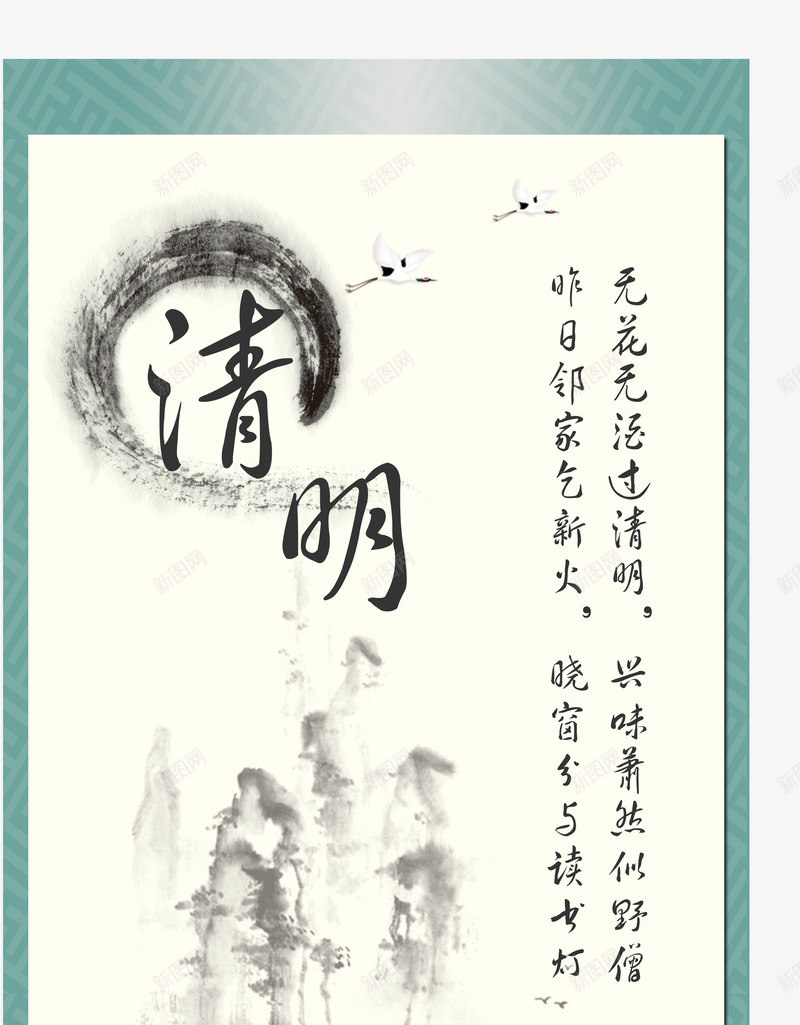 清明
无花无酒过清明，兴味萧然似野僧
昨日邻家乞新火，晓窗分与读书灯
新图网